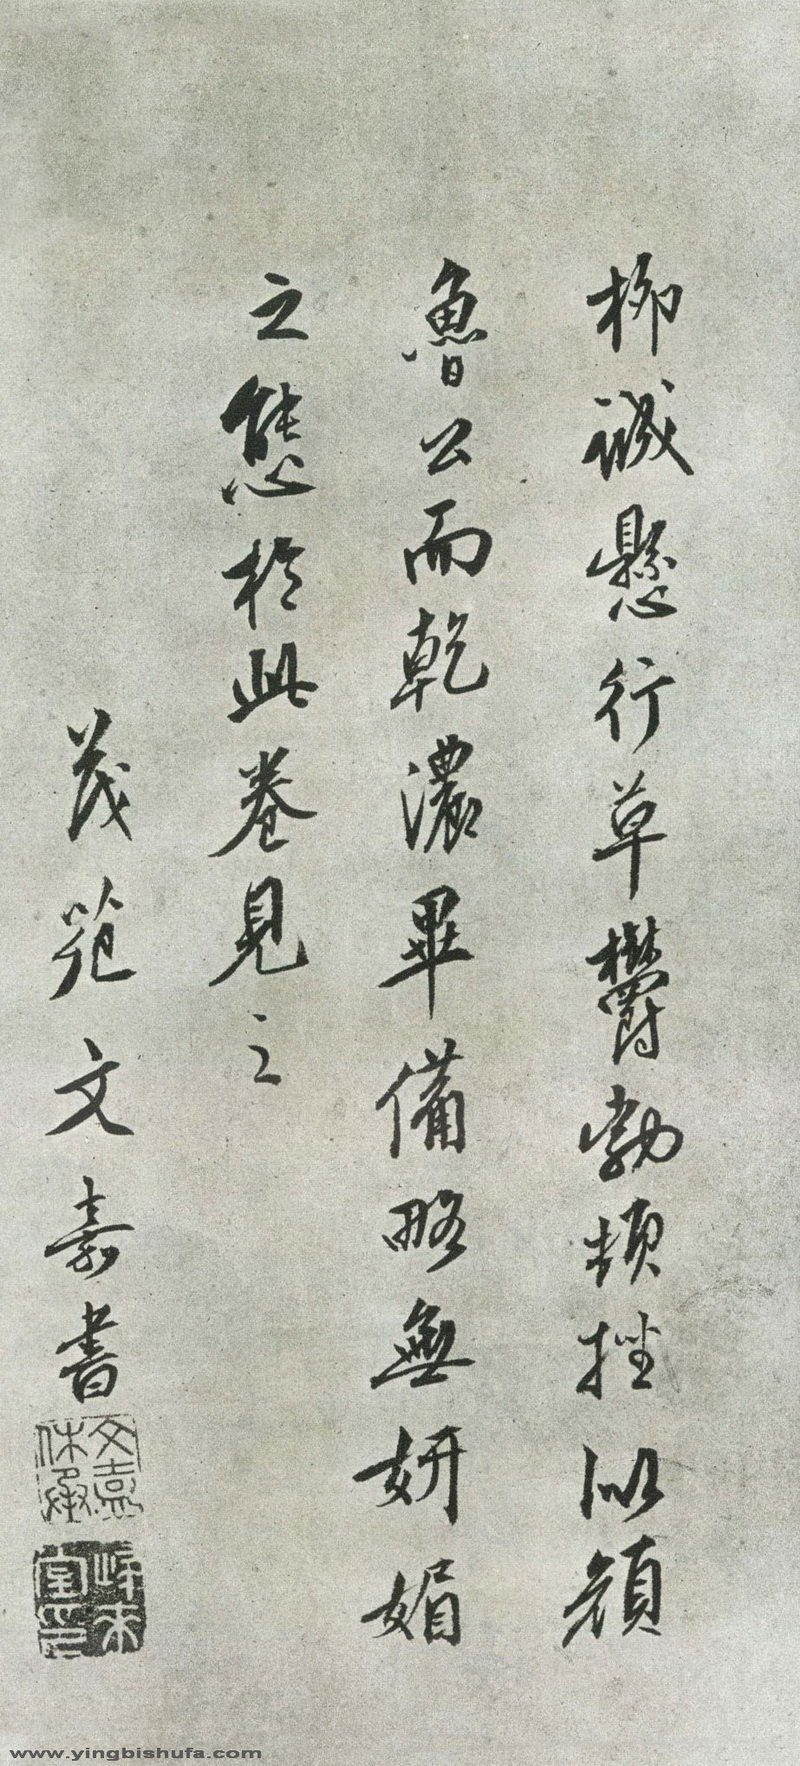 柳誠懸行草鬱勃頓挫似顏
魯公而乾濃畢備略無妍媚
之態於此卷見之
茂苑文嘉書
文嘉休承
www.yingbishufa.com